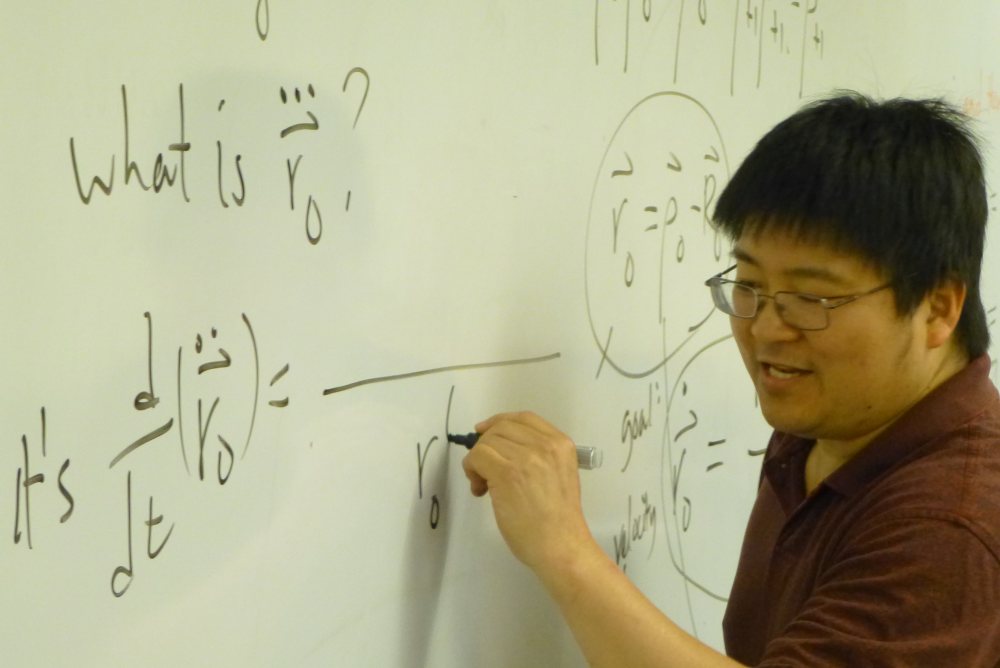 what is r⃛₀?
it's d/dt (r̈₀) =
r₀ (
r⃗₀ = p⃗₀ - P⃗₀
goal:
ṙ₀ = -
velocity